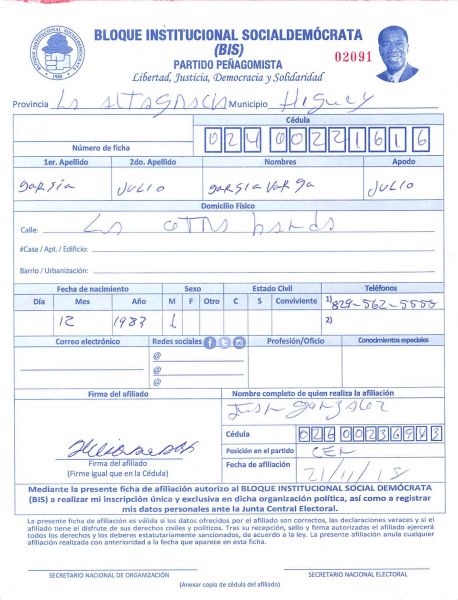 BLOQUE INSTITUCIONAL SOCIALDEMÓCRATA
(BIS)
PARTIDO PEÑAGOMISTA
Libertad, Justicia, Democracia y Solidaridad
02091
BLOQUE INSTITUCIONAL SOCIALDEMÓCRATA
1989
Provincia La Altagracia Municipio Higuey
Cédula
Número de ficha 024 0022161 6
1er. Apellido 2do. Apellido Nombres Apodo
garsia Julio garsia Varga Julio
Domicilio Físico
Calle: La otra banda
#Casa / Apt. / Edificio:
Barrio / Urbanización:
Fecha de nacimiento Sexo Estado Civil Teléfonos
Día Mes Año M F Otro C S Conviviente 1) 829-562-5555
12 1983 2)
Correo electrónico Redes sociales Profesión/Oficio Conocimientos especiales
@
@
@
Firma del afiliado Nombre completo de quien realiza la afiliación
gonzalez
Cédula 026 0023694 3
Posición en el partido CEN
Fecha de afiliación 21/11/18
Firma del afiliado
(Firme igual que en la Cédula)
Mediante la presente ficha de afiliación autorizo al BLOQUE INSTITUCIONAL SOCIAL DEMÓCRATA
(BIS) a realizar mi inscripción única y exclusiva en dicha organización política, así como a registrar
mis datos personales ante la Junta Central Electoral.
La presente ficha de afiliación es válida si los datos ofrecidos por el afiliado son correctos, las declaraciones veraces y si el
afiliado tiene el disfrute de sus derechos civiles y políticos. Tras su recepción, sello y firma autorizados el afiliado ejercerá
todos los derechos y los deberes estatutariamente sancionados, de acuerdo a la ley. La presente afiliación anula cualquier
afiliación realizada con anterioridad a la fecha que aparece en esta ficha.
SECRETARIO NACIONAL DE ORGANIZACIÓN SECRETARIO NACIONAL ELECTORAL
(Anexar copia de cédula del afiliado)